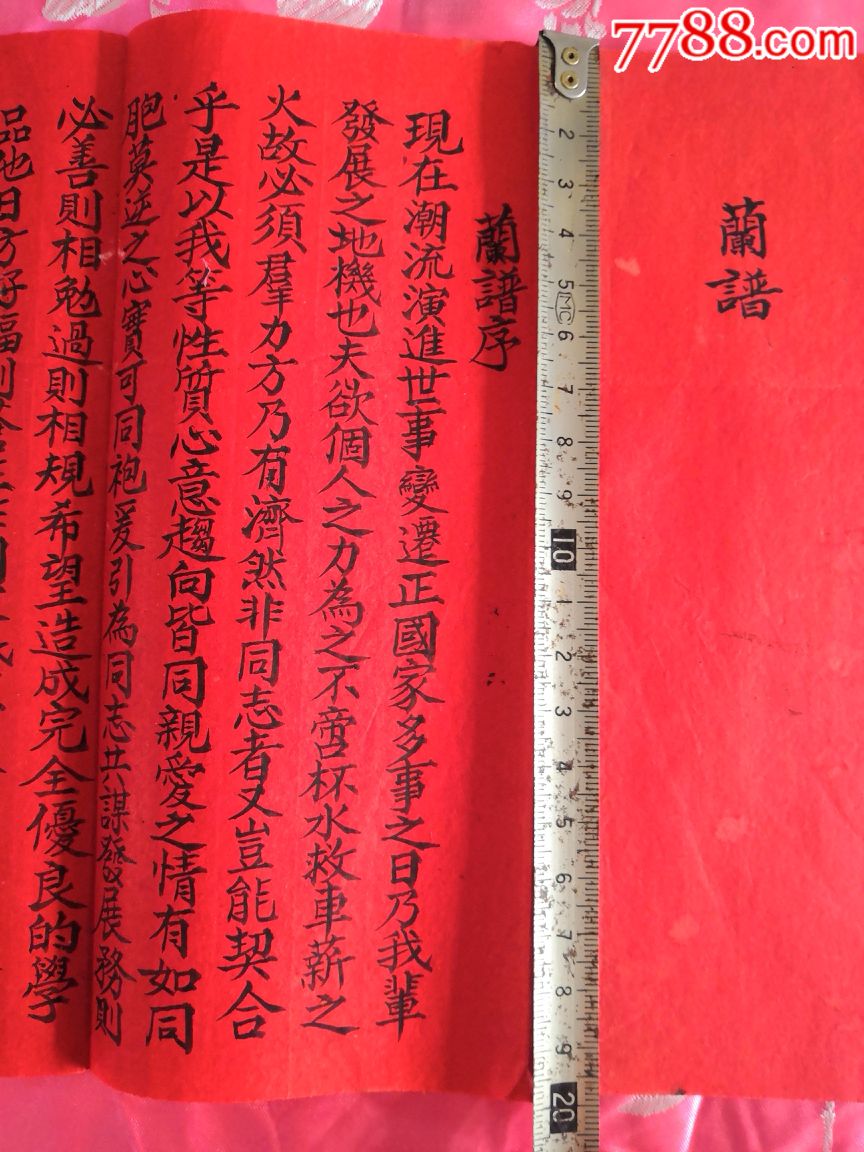 7788.com
蘭譜
蘭譜序
現在潮流演進世事變遷正國家多事之日乃我輩
發展之地機也夫欲個人之力為之不啻杯水救車薪之
火故必須羣力方乃有濟然非同志者又豈能契合
乎是以我等性質心意趨向皆同親愛之情有如同
胞莫逆之心實可同袍爰引為同志共謀發展務則
必善則相勉過則相規希望造成完全優良的學
品他日方好福則
2 3 4 5 MC 6 7 8 9 10 1 2 3 4 5 6 7 8 9 20